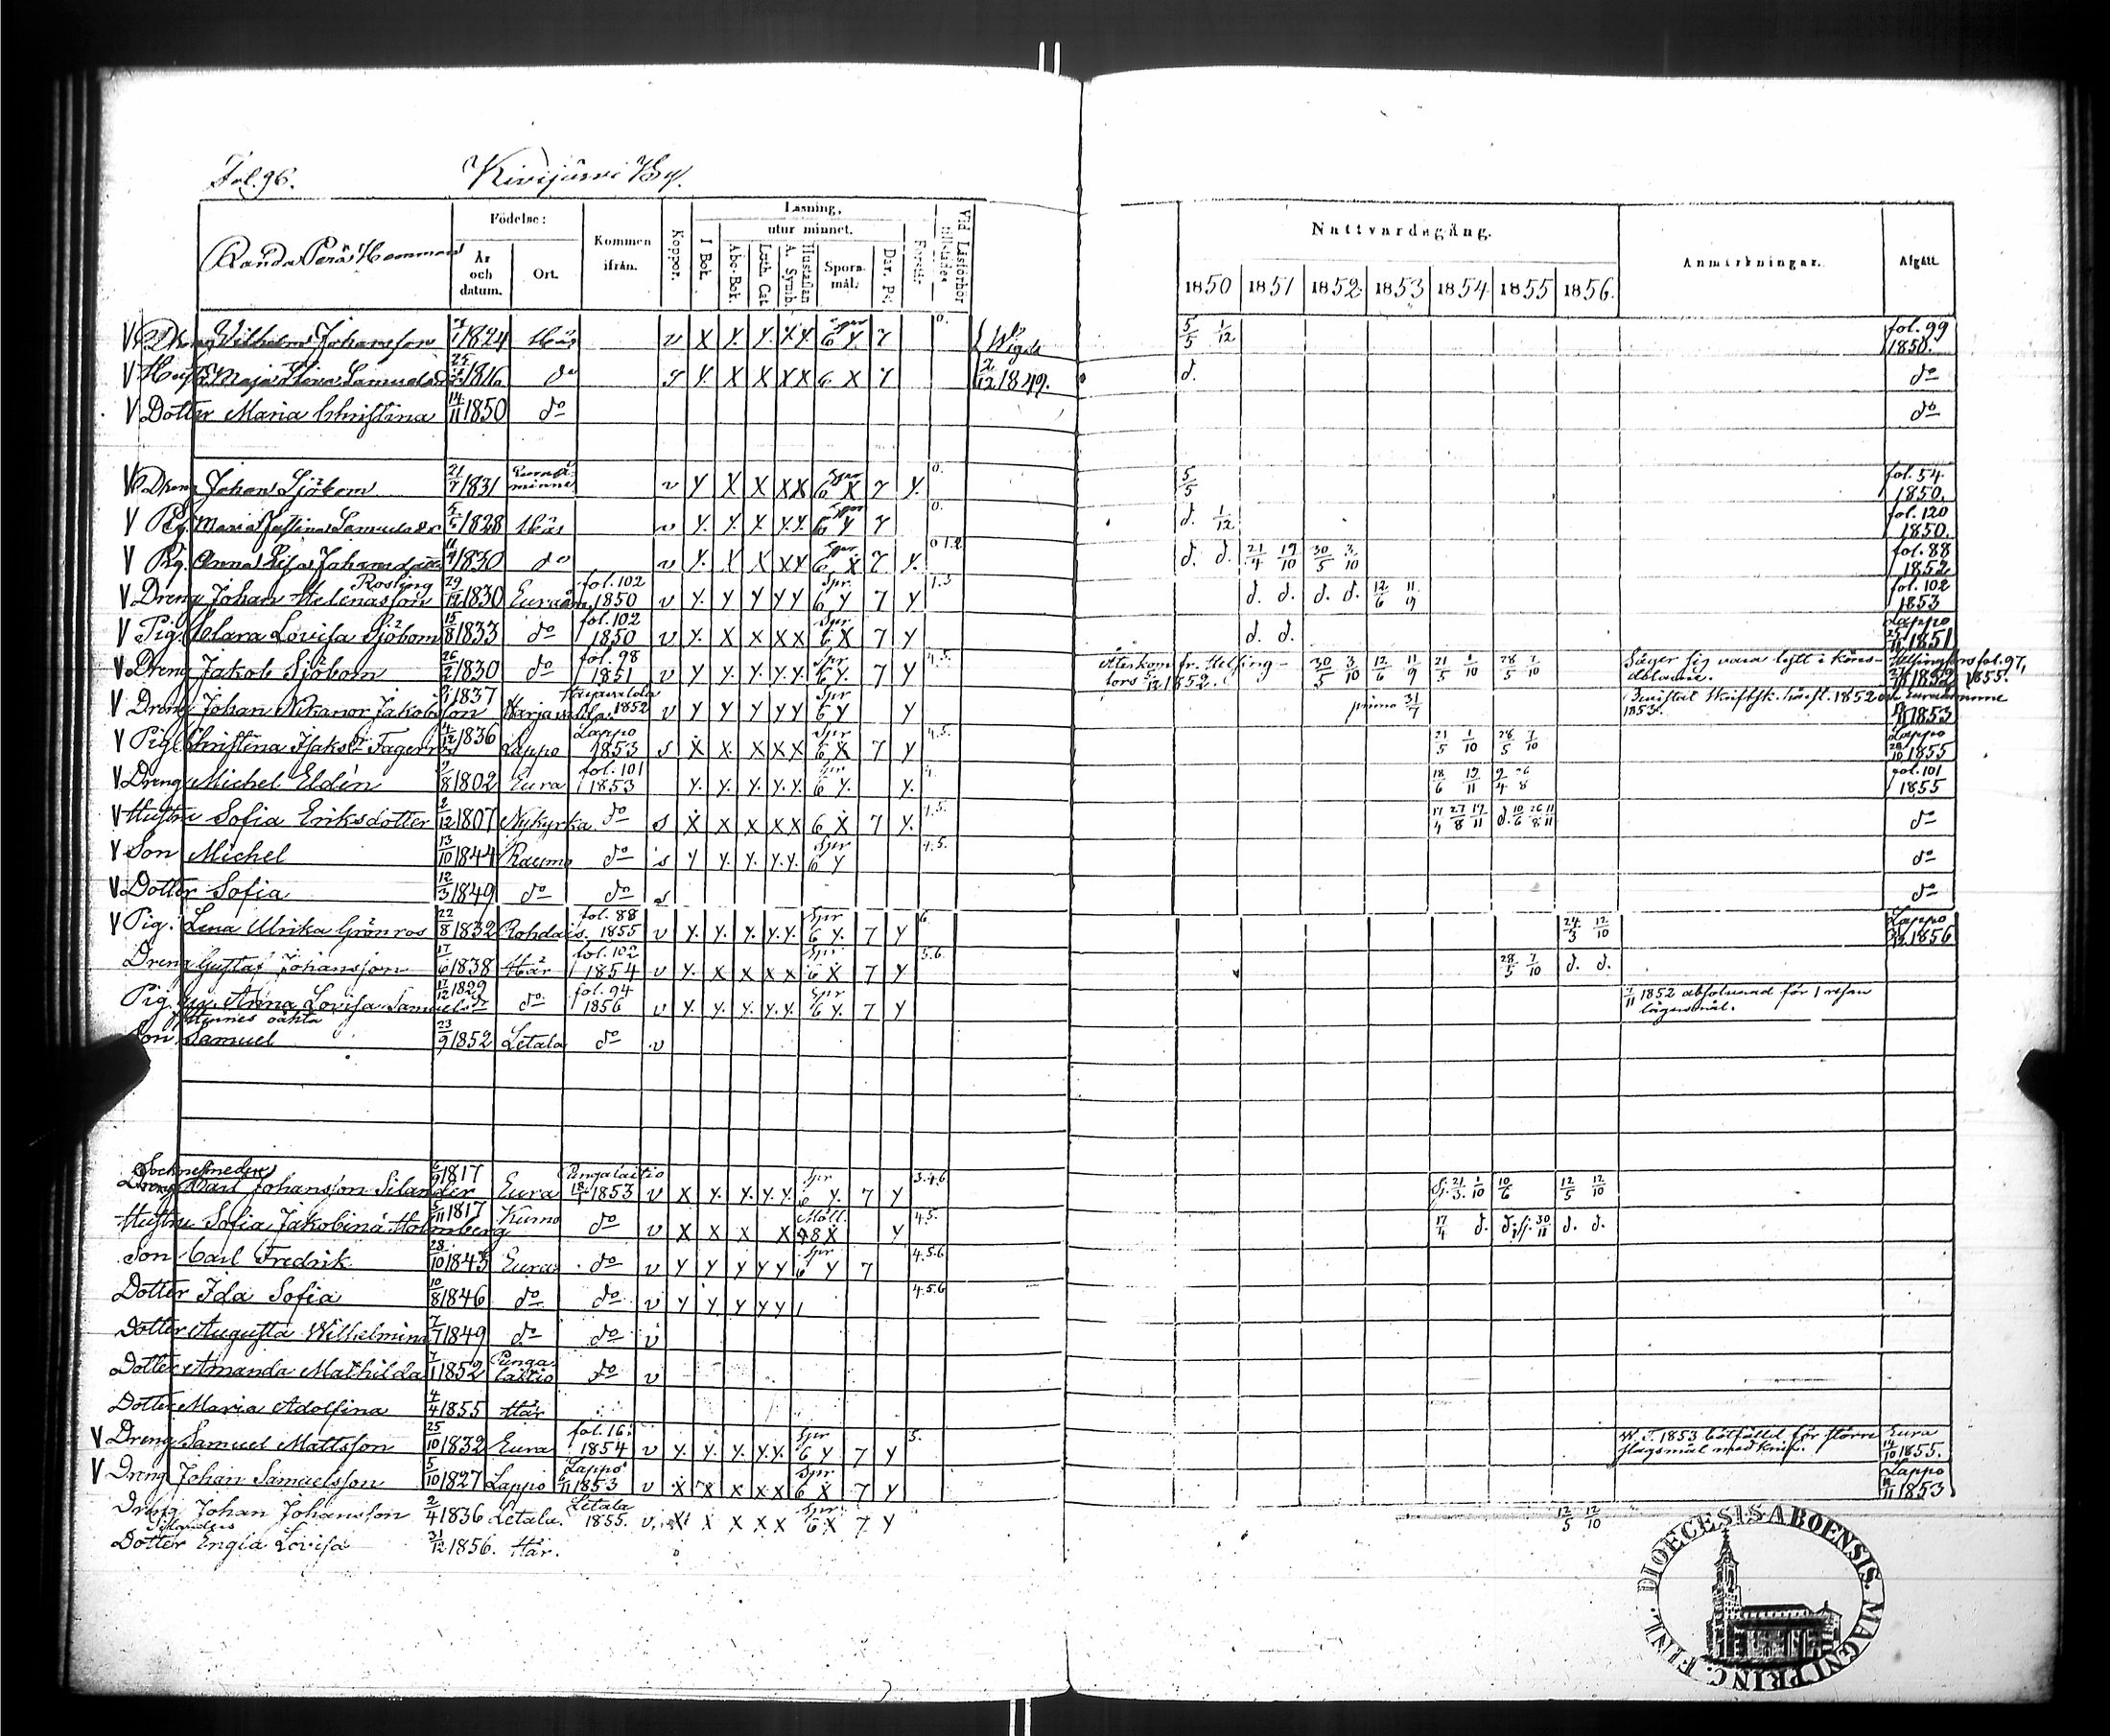 Fol. 96. Kivijärvi By.
Randa Perä Hemman
Födelse: År och datum. Ort. Kommen ifrån. Koppor. Läsning, I Bok. utur minnet. Abc-Bok. Luth. Cat. A. Symb. Hustaflan Sporsmål. Dav. Ps. Förstår. Vid Läsförhör tillstädes
Nattvardsgång. 1850 1851 1852 1853 1854 1855 1856. Anmärkningar. Afgått.
V Dreng Wilhelm Johansson 1824 Här v X Y. Y. X Y. Spr 6 Y. 7 0. Wigde 5/5 1/12 fol. 99 1850.
V Maja Stina Samuelsd 1816 do Y. X X X X 6 X 7 2/12 1849. d. do
V Dotter Maria Christina 14/11 1850 do do
V Dreng Johan Sjöbom 21/7 1831 v Y X X X X Spr 6 X 7 Y. 0. 5/5 fol. 54. 1850.
V Pig. Maria Justina Samuelsdr 5/5 1828 Här v Y. Y. Y. Y. Y. Spr 6 Y 7 0. d. 1/12 fol. 120 1850.
V Pig. Anna Lisa Johansd 1830 do v Y. X X X Y Spr. 6 X 7 Y. 0 1.2. d. d. 21/4 19/10 30/5 3/10 fol. 88 1852
V Dreng Johan Helenasson Rosling 29/12 1830 Euraåm. fol. 102 1850 v Y. Y Y Y Y Spr. 6 Y 7 Y 1.3 d. d. d. d. 12/6 11/9 fol. 102 1853
V Pig. Clara Lovisa Sjöbom 15/8 1833 do fol. 102 1850 v Y. X X X X Spr 6 X 7 Y d. d. Lappo 1851
V Dreng Jakob Sjöbom 26/2 1830 do fol. 98 1851 v Y Y. Y. Y. Y. Spr 6 Y. 7 Y 4.5. Återkom fr. Helsing- 30/5 3/10 12/6 11/9 21/5 1/10 28/5 7/10 Säger sig vara lytt i Helsingfors fol. 97,
fors 1852. 1852 1855.
V Dreng Johan Nikanor Jakobsson 1837 Harjavalta Harjavalda 1852 v Y Y Y Y Y Spr 6 Y Y primo 31/7 Skriftsk. 1852 och Euraåminne
1853. 1853
V Pig. Christina Isaksd. Fagerros 4/12 1836 Lappo Lappo 1853 s X X. X X X Spr 6 X 7 Y 4.5. 21/5 1/10 28/5 7/10 Lappo 1855
V Dreng Michel Eldén 1802 Eura fol. 101 1853 Y. Y. Y. Y. Y. Spr 6 Y. Y. 4. 18/6 19/11 9/4 26/8 fol. 101 1855
V Hustru Sofia Eriksdotter 2/12 1807 Nykyrka do s X X X X X 6 X 7 Y. 4.5. 17/4 27/8 19/11 d. 10/6 26/8 11/11 do
V Son Michel 13/10 1844 Raumo do s Y Y. Y. Y. Y. Spr 6 Y 4.5. do
V Dotter Sofia 12/3 1849 do do s do
V Pig. Lena Ulrika Grönros 22/8 1832 Rohdais. fol. 88 1855 v Y. Y. Y. Y. Y. Spr 6 Y. 7 Y 6. 24/3 12/10 Lappo 1856
Dreng Gustaf Johansson 17/6 1838 Här fol. 102 1854 v Y. X X X X Spr 6 X 7 Y 5.6. 28/5 7/10 d. d.
Pig. Anna Lovisa Samuelsdr 17/12 1829 do fol. 94 1856 v Y. Y. Y. Y. Y. Spr 6 Y. 7 Y 1852 absolverad för 1 resan
lägersmål.
Hennes oäkta
Son Samuel 23/9 1852 Letala do v
Socknesmeden
Dreng Carl Johansson Silander 1817 Eura Pungalaitio 18/1 1853 v X Y. Y. Y. Y. Spr 6 Y. 7 Y 3.4.6 21/3. 1/10 10/6 12/5 12/10
Hustru Sofia Jakobina Holmberg 5/11 1817 Kumo do v X X X X Moll. 98 X Y 4.5. 17/4 d. 30/11 d. d.
Son Carl Fredrik 28/10 1843 Eura do v Y Y Y Y Y Spr 6 Y 7 4.5.6
Dotter Ida Sofia 10/8 1846 do do v Y Y Y Y Y 4.5.6
Dotter Augusta Wilhelmina 7/7 1849 do do v
Dotter Amanda Mathilda 7/1 1852 Pungalaitio do v
Dotter Maria Adolfina 4/4 1855 Här
V Dreng Samuel Mattsson 25/10 1832 Eura fol. 16 1854 v Y. Y. Y. Y. Y. Spr 6 Y 7 Y 5. W. T. 1853 bötfälld för större Eura
slagsmål med knif. 14/10 1855.
V Dreng Johan Samuelsson 5/10 1827 Lappo Lappo 1853 v X X X X X Spr 6 X 7 Y Lappo 1853
Dreng Johan Johansson 2/4 1836 Letala. Letala 1855. v. X X X X X Spr. 6 X 7 Y 12/5 12/10
Silanders
Dotter Engla Lovisa 31/12 1856. Här.
DIOECESIS ABOENSIS. MAGNI PRINC. FINL.